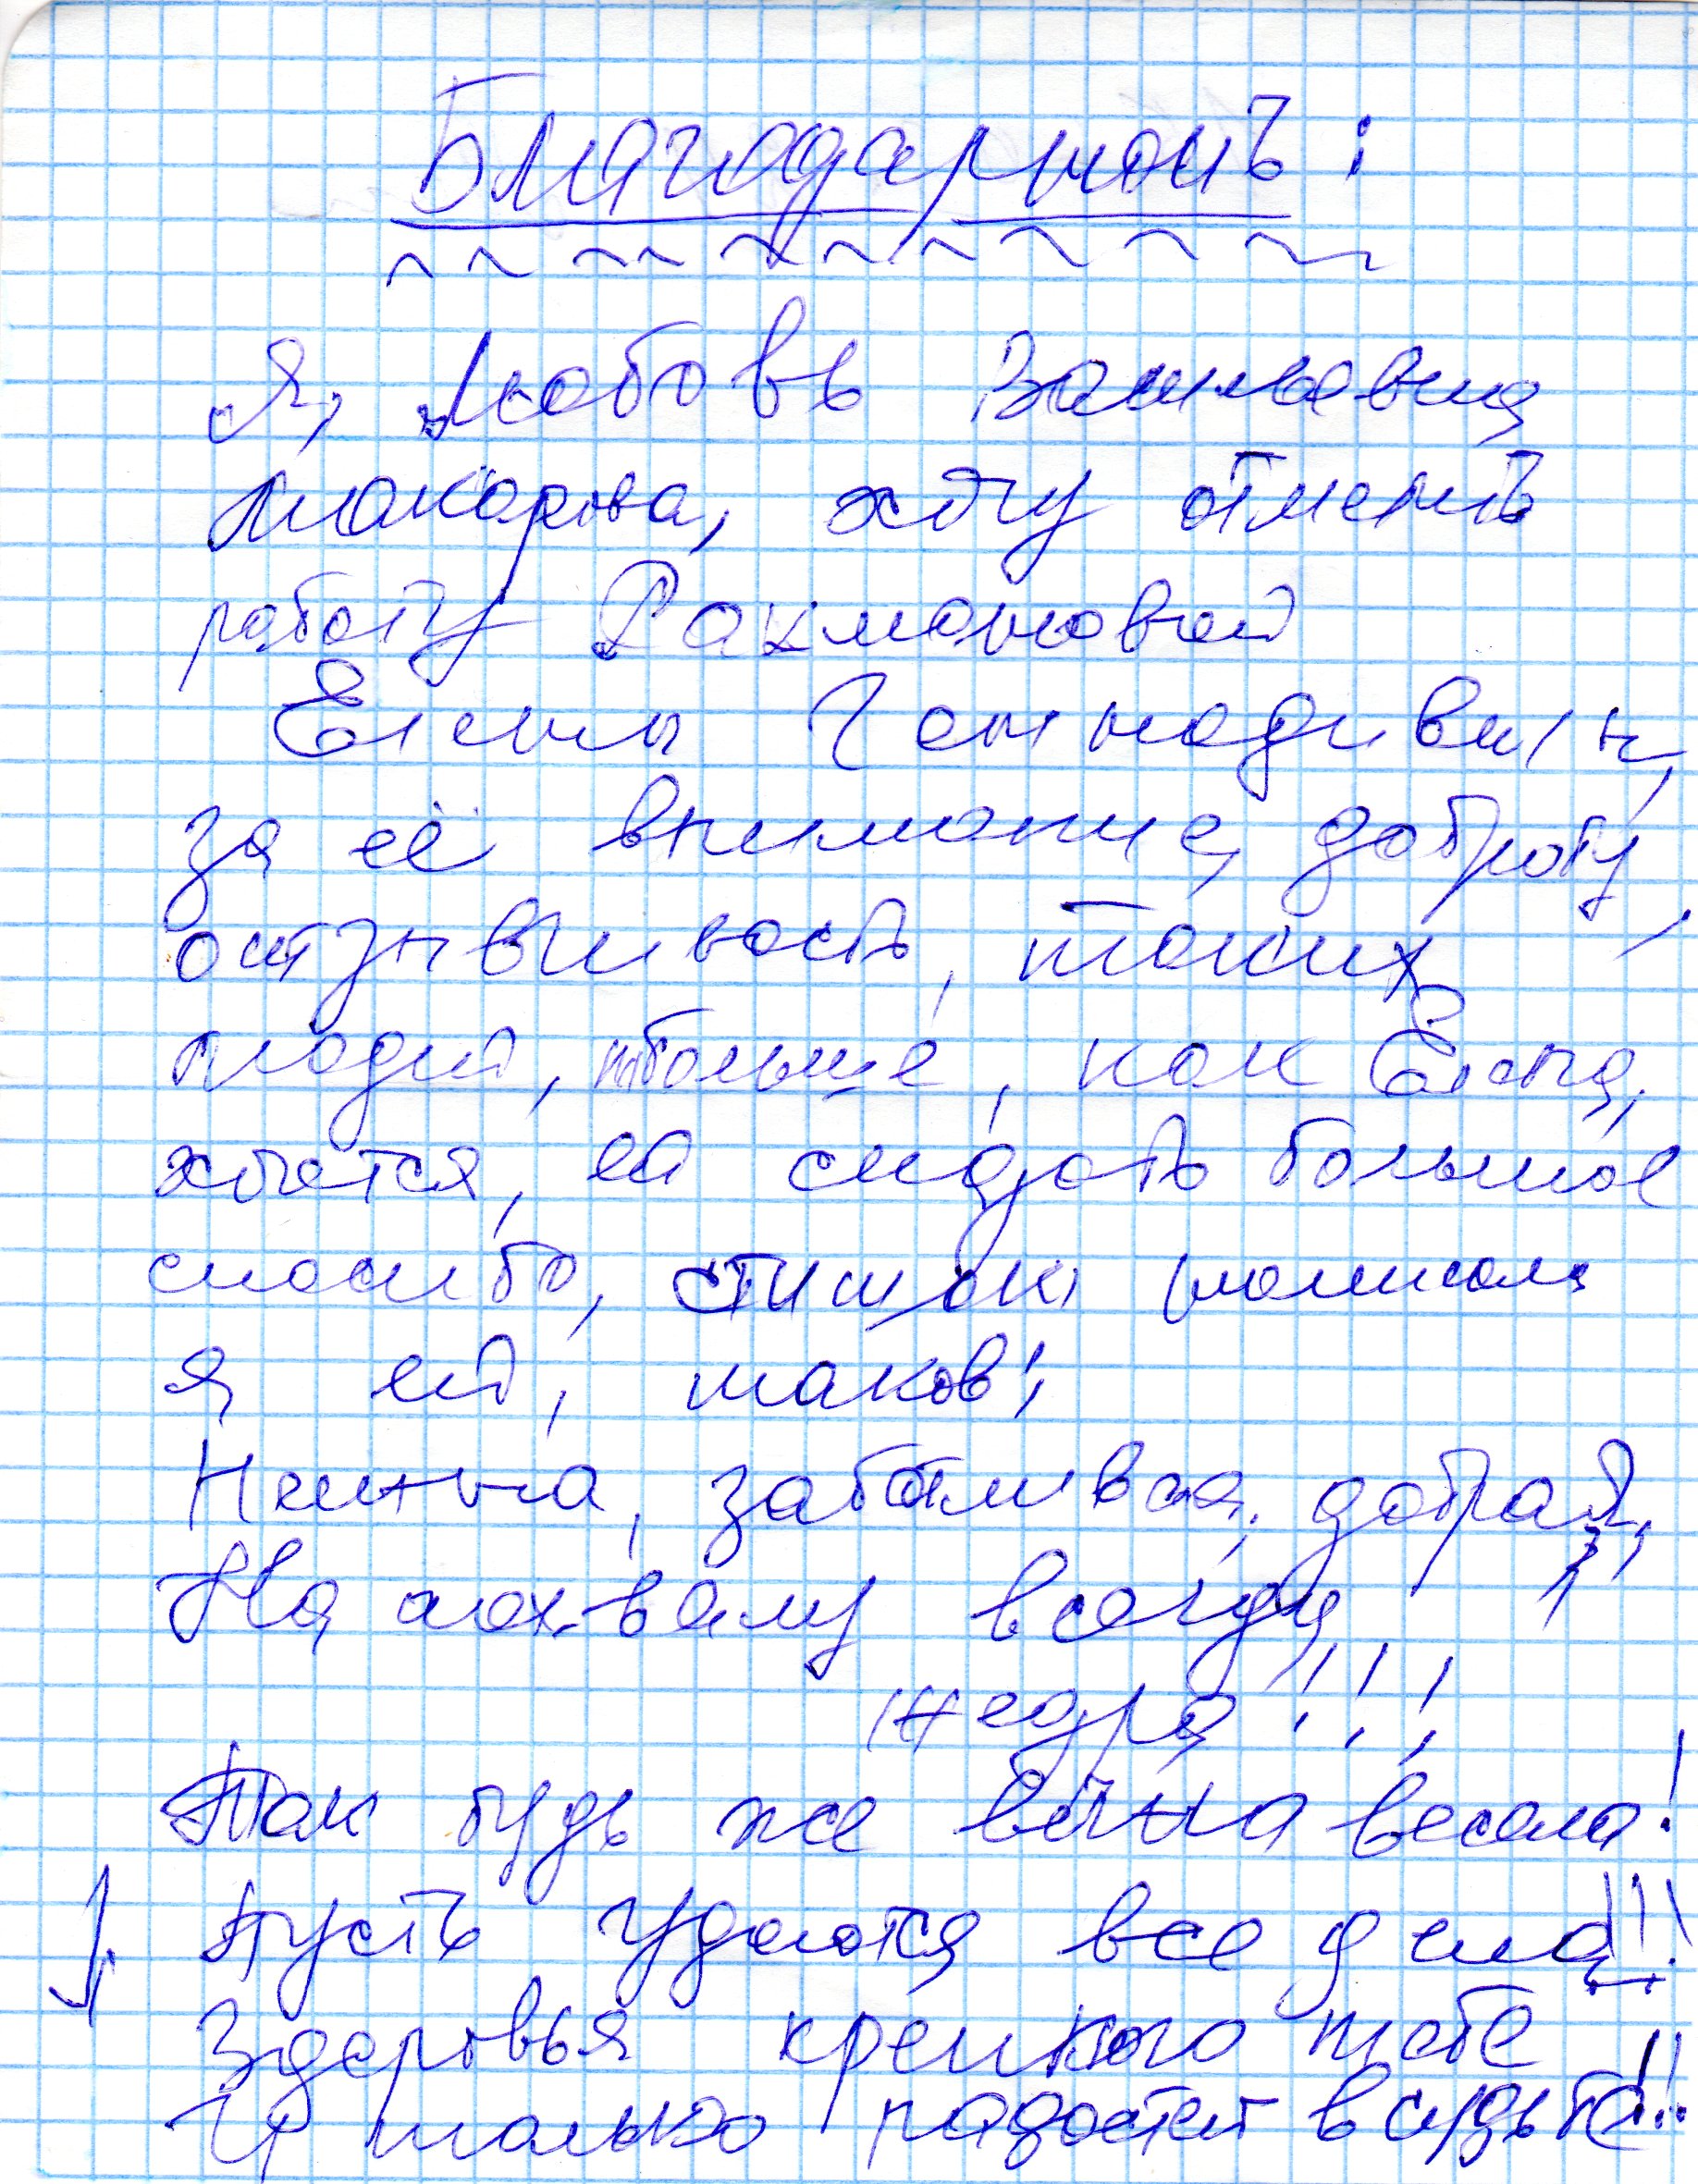 Благодарность:
Я, Любовь Васильевна
Макарова, хочу отметить
работу Рахмановой
Елены Геннадивны,
за её внимание, доброту,
отзывчивость, таких
людей, побольше, как Елена,
хочется, ей сказать большое
спасибо, стишок написала
я ей, таков:
Нежная, заботливая, добрая,
На похвалу всегда
щедра!!!
Так будь же вечна весела!
Пусть удаются все дела!!!
Здоровья крепкого тебе
И только радостей в судьбе!!